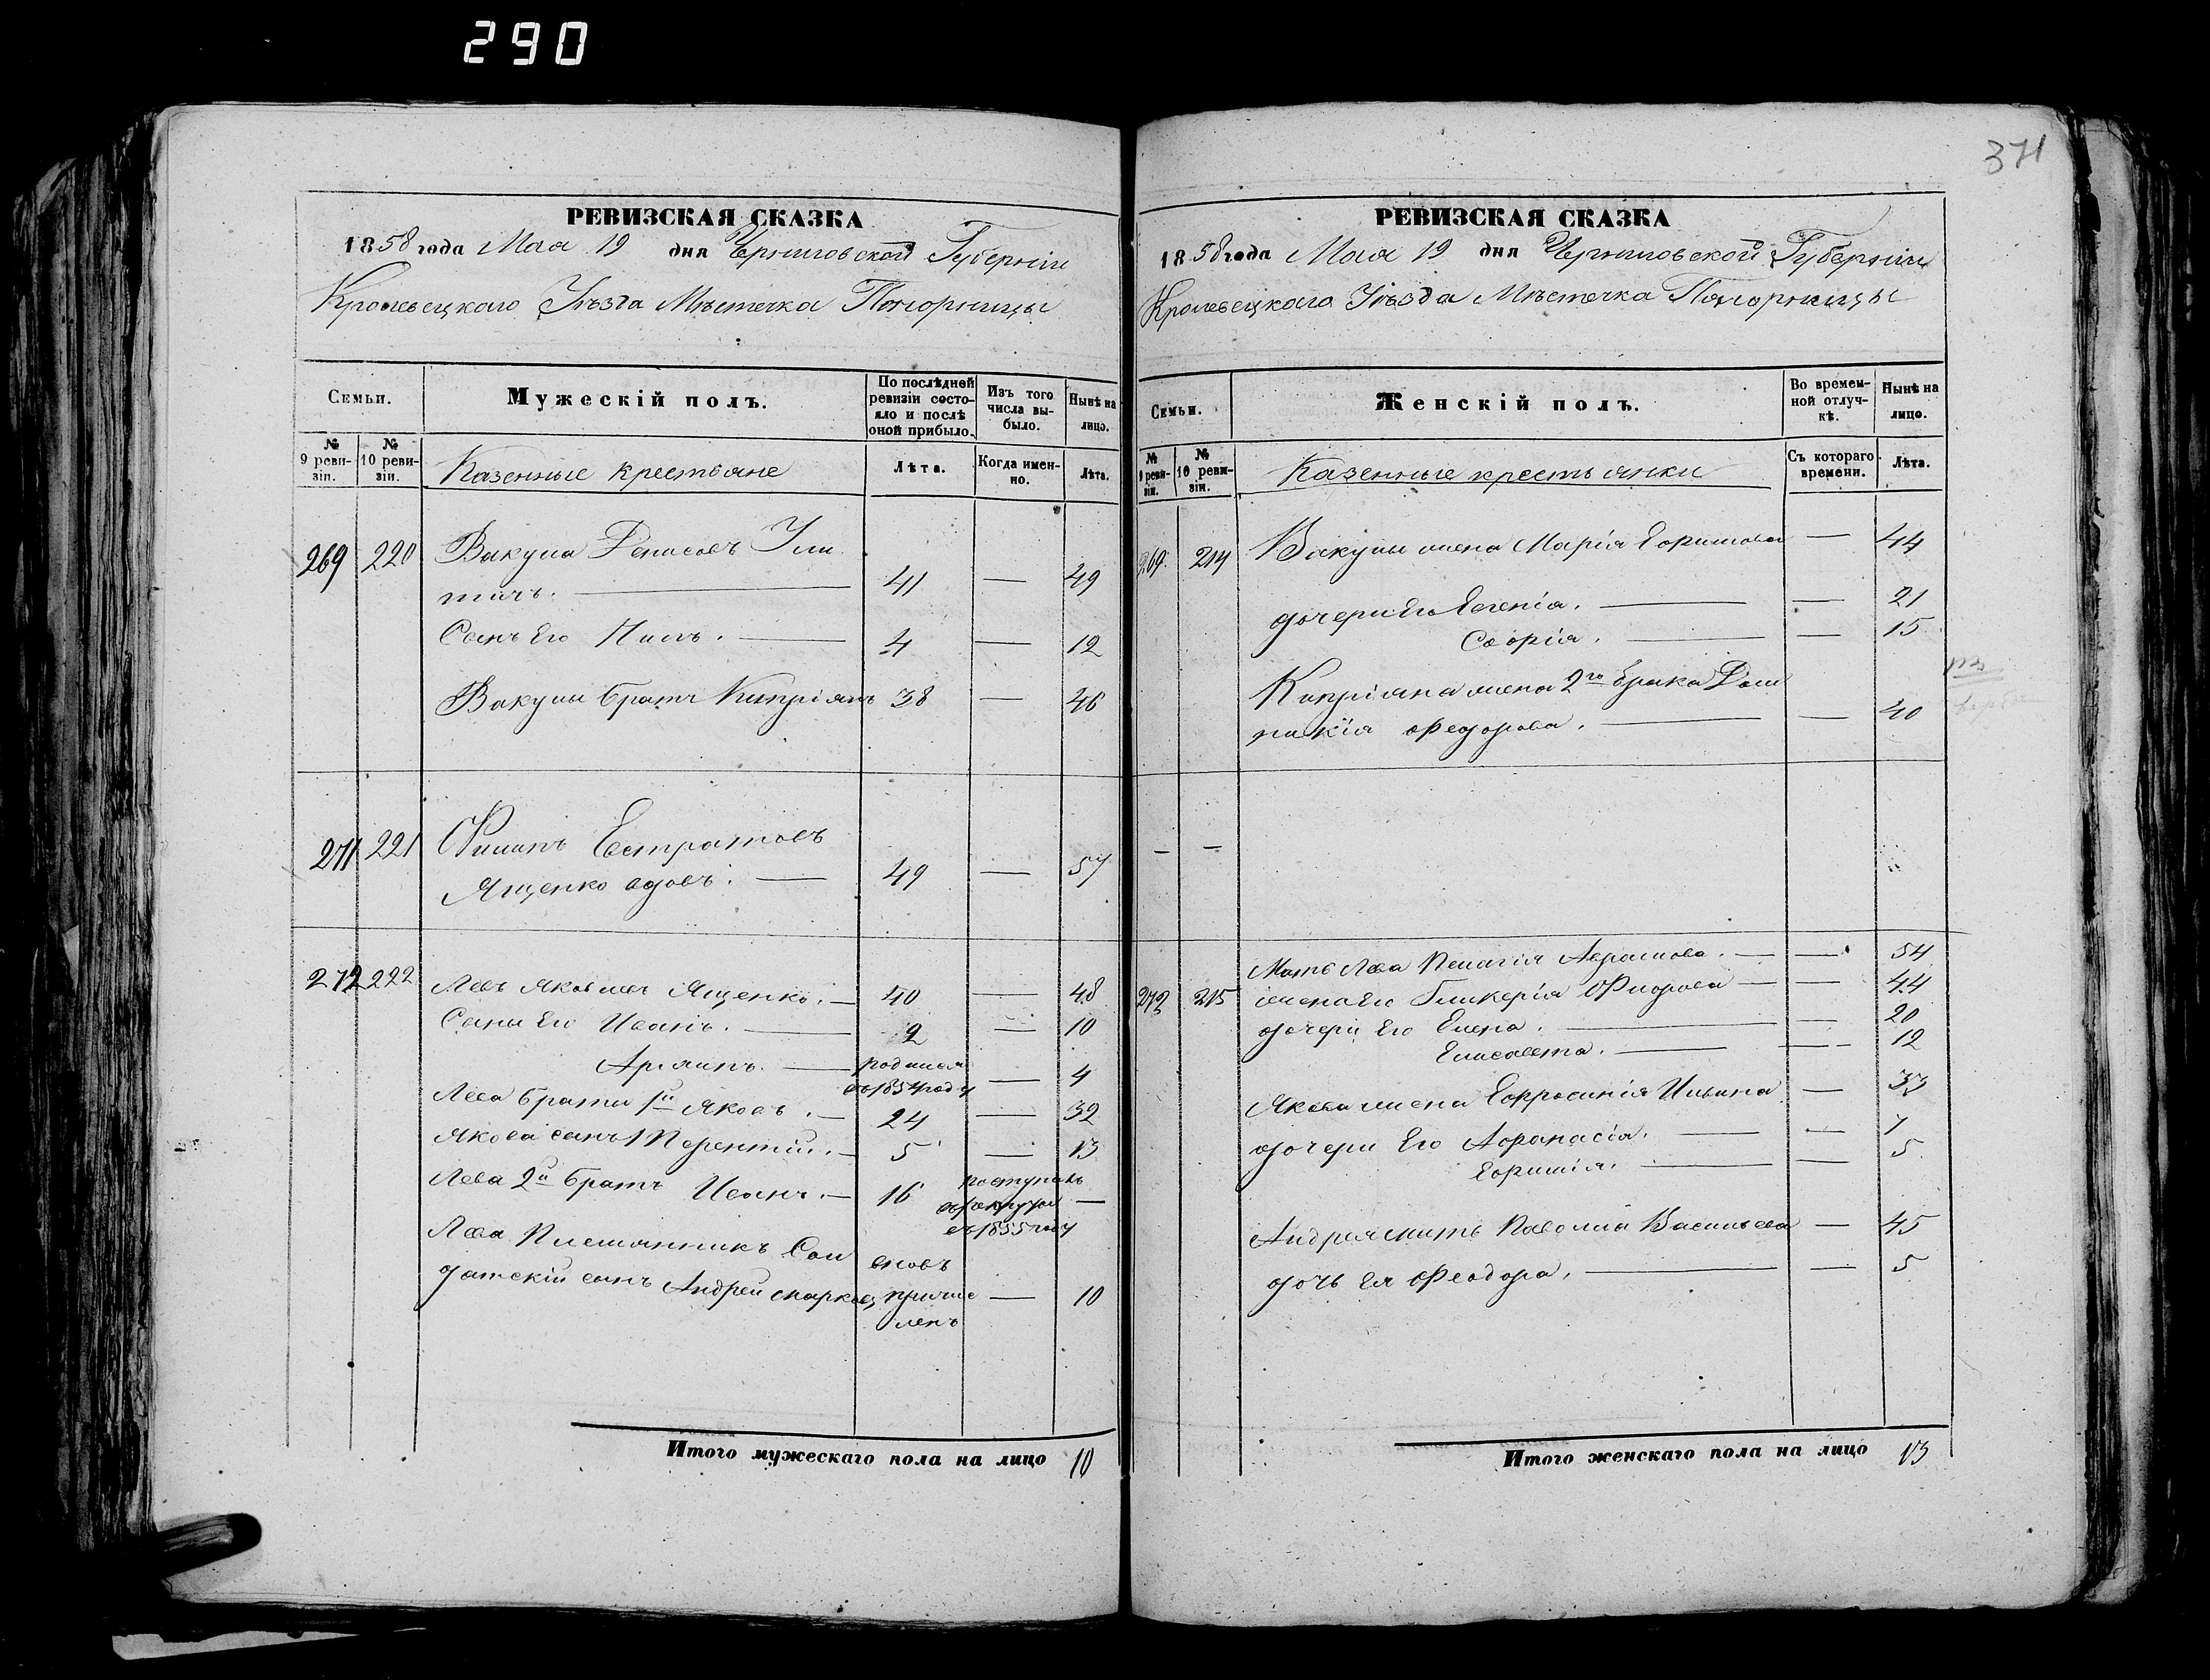 290
371
РЕВИЗСКАЯ СКАЗКА
1858 года Мая 19 дня Черниговской Губерніи
Кролевецкаго Уѣзда Мѣстечка Понорницы
Семьи.
Мужескій полъ.
По послѣдней ревизіи состояло и послѣ оной прибыло.
Изъ того числа выбыло.
Нынѣ на лицо.
№ 9 ревизіи.
№ 10 ревизіи.
Казенные крестьяне
Лѣта.
Когда именно.
Лѣта.
269 220 Вакула Денисовъ
41 — 49
Сынъ Его 4 — 12
Вакулы братъ Кипріянъ 38 — 46
271 221 Филипъ Евстратовъ
Ященко вдовъ. — 49 — 57
272 222 Левъ Яковлевъ Ященко. — 40 — 48
Сыны Его Иванъ. — 2 — 10
родился
въ 1854 году — 4
Лева братья 1й Яковъ. — 24 — 32
Якова сынъ Терентій. — 5 — 13
Лева 2й братъ Иванъ. — 16 поступилъ
въ рекруты —
въ 1855 году
Лева Племянникъ Сол вновь
датскій сынъ Андрей причис — 10
ленъ
Итого мужескаго пола на лицо 10
РЕВИЗСКАЯ СКАЗКА
1858 года Мая 19 дня Черниговской Губерніи
Кролевецкаго Уѣзда Мѣстечка Понорницы
Семьи.
Женскій полъ.
Во временной отлучкѣ.
Нынѣ на лицо.
№ 9 ревизіи.
№ 10 ревизіи.
Казенные крестьянки
Съ котораго времени.
Лѣта.
269. 214 Вакулы жена Марія Ефимова — 44
дочери Его Евгенія. — — 21
Софія. — — 15
Кипріяна жена 2го брака Дом
никія Федорова. — — 40
— —
Мать Лева Пелагія Абрамова. — — 54
272 215 жена Его Гликерія Фиорова — — 44
дочери Его Елена. — — 20
Елисавета. — — 12
Якова жена Ефросинія Ильина — 33
дочери Его Афанасія. — — 7
Ефимія. — — 5
Андрея мать Васильева — 45
дочь ея Феодора. — — 5
Итого женскаго пола на лицо 13